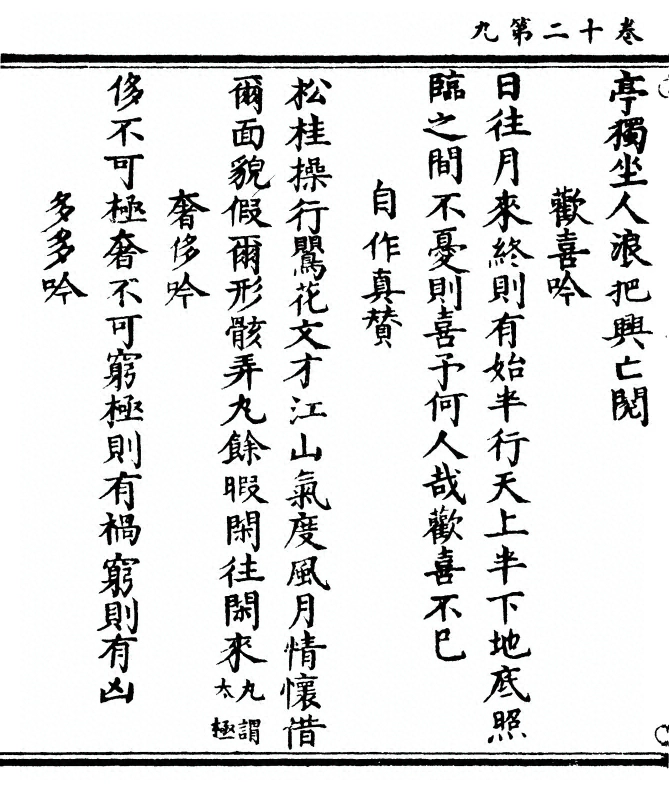 卷十二第九
亭獨坐人浪把興亡閱
歡喜吟
日往月來終則有始半行天上半下地底照
臨之間不憂則喜予何人哉歡喜不已
自作真贊
松桂操行鸎花文才江山氣度風月情懷借
爾面貌假爾形骸弄丸餘暇閑往閑來丸謂太極
奢侈吟
侈不可極奢不可窮極則有禍窮則有凶
多多吟